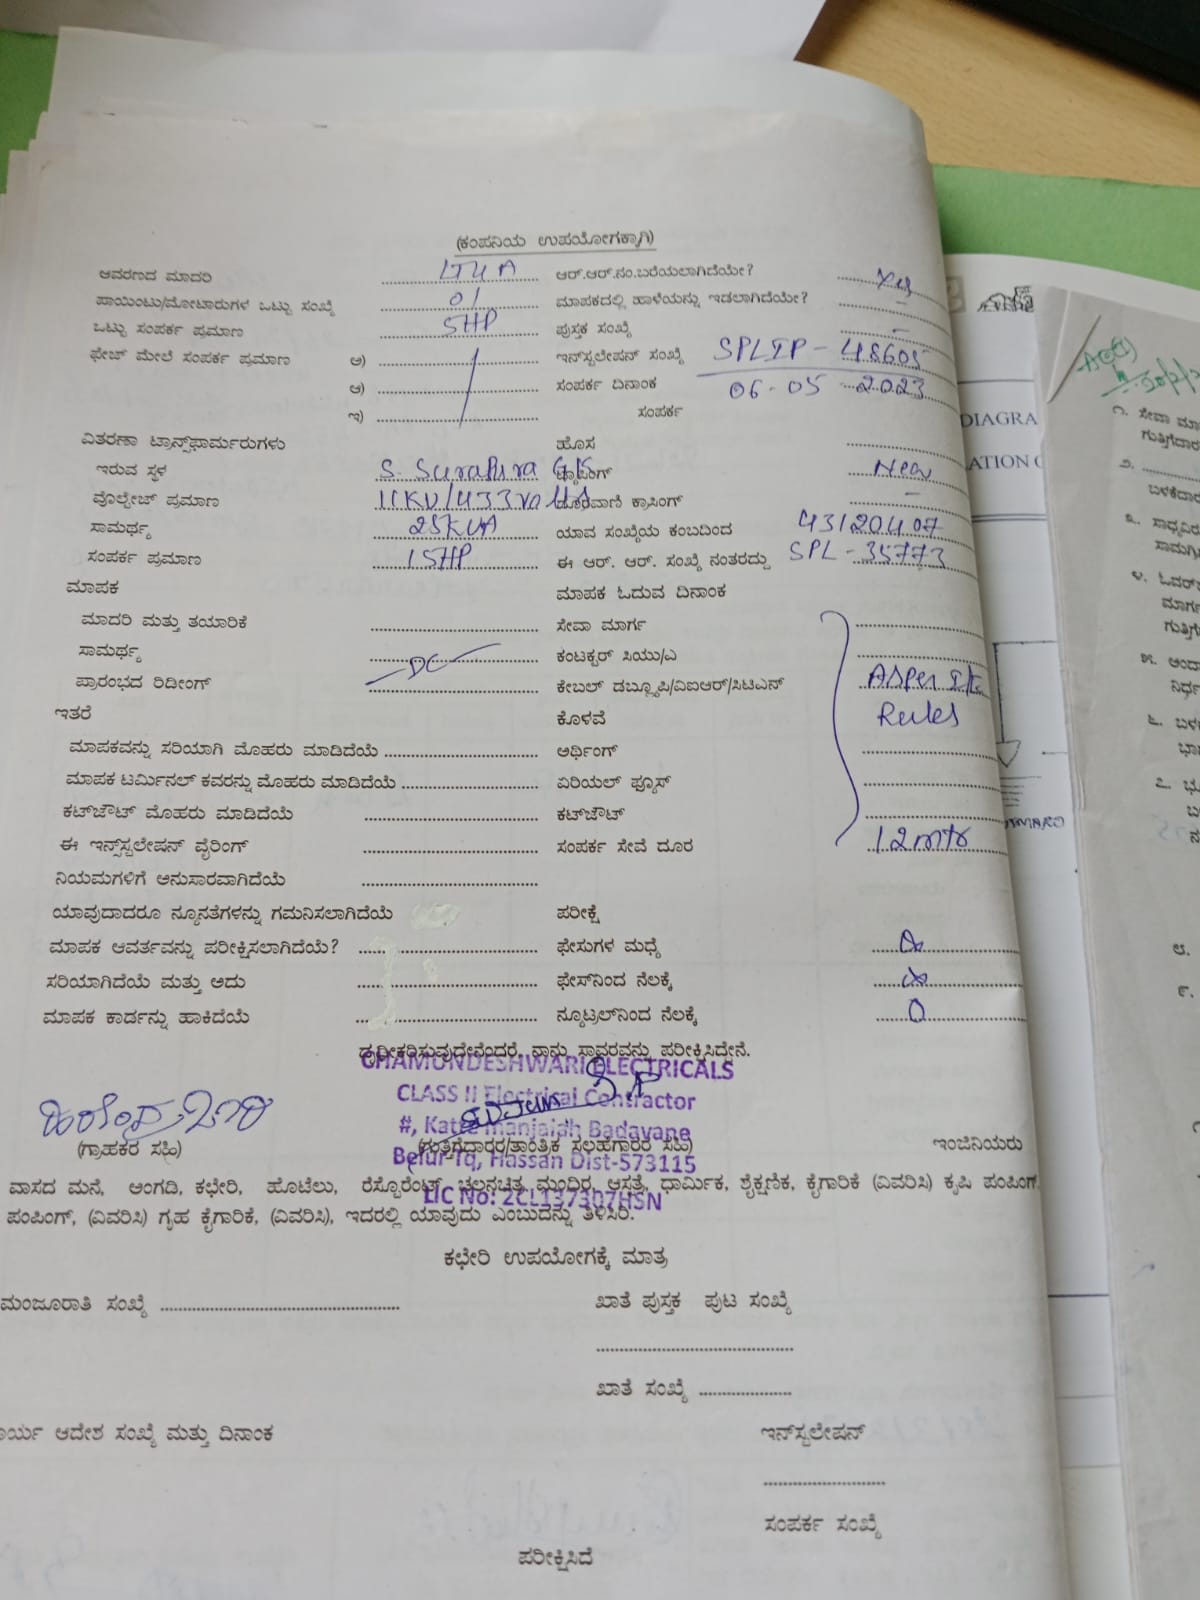 (ಕಂಪನಿಯ ಉಪಯೋಗಕ್ಕಾಗಿ)
ಆವರಣದ ಮಾದರಿ ಆರ್.ಆರ್.ನಂ.ಬರೆಯಲಾಗಿದೆಯೇ?
ಪಾಯಿಂಟು/ಮೋಟಾರುಗಳ ಒಟ್ಟು ಸಂಖ್ಯೆ 01 ಮಾಪಕದಲ್ಲಿ ಹಾಳೆಯನ್ನು ಇಡಲಾಗಿದೆಯೇ? -
ಒಟ್ಟು ಸಂಪರ್ಕ ಪ್ರಮಾಣ 5HP ಪುಸ್ತಕ ಸಂಖ್ಯೆ -
ಫೇಜ್ ಮೇಲೆ ಸಂಪರ್ಕ ಪ್ರಮಾಣ ಅ) ಇನ್‌ಸ್ಟಲೇಷನ್ ಸಂಖ್ಯೆ SPLIP - 48605
ಆ) ಸಂಪರ್ಕ ದಿನಾಂಕ 06-05-2023
ಇ) ಸಂಪರ್ಕ
ವಿತರಣಾ ಟ್ರಾನ್ಸ್‌ಫಾರ್ಮರುಗಳು ಹೊಸ
ಇರುವ ಸ್ಥಳ S. Surapura ಟ್ಯಾಪಿಂಗ್ New
ವೊಲ್ಟೇಜ್ ಪ್ರಮಾಣ 11KV/433 ದೂರವಾಣಿ ಕ್ರಾಸಿಂಗ್ -
ಸಾಮರ್ಥ್ಯ 25KVA ಯಾವ ಸಂಖ್ಯೆಯ ಕಂಬದಿಂದ 43120407
ಸಂಪರ್ಕ ಪ್ರಮಾಣ 15HP ಈ ಆರ್. ಆರ್. ಸಂಖ್ಯೆ ನಂತರದ್ದು SPL-35773
ಮಾಪಕ ಮಾಪಕ ಓದುವ ದಿನಾಂಕ
ಮಾದರಿ ಮತ್ತು ತಯಾರಿಕೆ ಸೇವಾ ಮಾರ್ಗ
ಸಾಮರ್ಥ್ಯ DC ಕಂಟಕ್ಟರ್ ಸಿಯು/ಎ
ಪ್ರಾರಂಭದ ರಿಡೀಂಗ್ ಕೇಬಲ್ ಡಬ್ಲ್ಯೂಪಿ/ವಿಐಆರ್/ಸಿಟಿಎಸ್ Asper
ಇತರೆ ಕೊಳವೆ Rules
ಮಾಪಕವನ್ನು ಸರಿಯಾಗಿ ಮೊಹರು ಮಾಡಿದೆಯೆ ಅರ್ಥಿಂಗ್
ಮಾಪಕ ಟರ್ಮಿನಲ್ ಕವರನ್ನು ಮೊಹರು ಮಾಡಿದೆಯೆ ಏರಿಯಲ್ ಫ್ಯೂಸ್
ಕಟ್‌ಜೌಟ್ ಮೊಹರು ಮಾಡಿದೆಯೆ ಕಟ್‌ಔಟ್
ಈ ಇನ್ಸ್‌ಸ್ಟಲೇಷನ್ ವೈರಿಂಗ್ ಸಂಪರ್ಕ ಸೇವೆ ದೂರ 12mtr
ನಿಯಮಗಳಿಗೆ ಅನುಸಾರವಾಗಿದೆಯೆ
ಯಾವುದಾದರೂ ನ್ಯೂನತೆಗಳನ್ನು ಗಮನಿಸಲಾಗಿದೆಯೆ ಪರೀಕ್ಷೆ
ಮಾಪಕ ಆವರ್ತವನ್ನು ಪರೀಕ್ಷಿಸಲಾಗಿದೆಯೆ? ಫೇಸುಗಳ ಮಧ್ಯೆ
ಸರಿಯಾಗಿದೆಯೆ ಮತ್ತು ಅದು ಫೇಸ್‌ನಿಂದ ನೆಲಕ್ಕೆ
ಮಾಪಕ ಕಾರ್ಡನ್ನು ಹಾಕಿದೆಯೆ ನ್ಯೂಟ್ರಲ್‌ನಿಂದ ನೆಲಕ್ಕೆ 0
ದೃಢೀಕರಿಸುವುದೇನೆಂದರೆ, ನಾನು ಸ್ಥಾವರವನ್ನು ಪರೀಕ್ಷಿಸಿದ್ದೇನೆ.
CHAMUNDESHWARI ELECTRICALS
CLASS II Electrical Contractor
#, Katte Manjaiah Badavane
(ಗ್ರಾಹಕರ ಸಹಿ) (ಗುತ್ತಿಗೆದಾರರ/ತಾಂತ್ರಿಕ ಸಲಹೆಗಾರರ ಸಹಿ) ಇಂಜಿನಿಯರು
Belur Tq, Hassan Dist-573115
LIC No: 2CL137307HSN
ವಾಸದ ಮನೆ, ಅಂಗಡಿ, ಕಛೇರಿ, ಹೊಟೆಲು, ರೆಸ್ಟೊರೆಂಟ್, ಚಲನಚಿತ್ರ ಮಂದಿರ, ಆಸ್ಪತ್ರೆ, ಧಾರ್ಮಿಕ, ಶೈಕ್ಷಣಿಕ, ಕೈಗಾರಿಕೆ (ವಿವರಿಸಿ) ಕೃಷಿ ಪಂಪಿಂಗ್
ಪಂಪಿಂಗ್, (ವಿವರಿಸಿ) ಗೃಹ ಕೈಗಾರಿಕೆ, (ವಿವರಿಸಿ), ಇದರಲ್ಲಿ ಯಾವುದು ಎಂಬುದನ್ನು ತಿಳಿಸಿರಿ.
ಕಛೇರಿ ಉಪಯೋಗಕ್ಕೆ ಮಾತ್ರ
ಮಂಜೂರಾತಿ ಸಂಖ್ಯೆ ಖಾತೆ ಪುಸ್ತಕ ಪುಟ ಸಂಖ್ಯೆ
ಖಾತೆ ಸಂಖ್ಯೆ
ಆದೇಶ ಸಂಖ್ಯೆ ಮತ್ತು ದಿನಾಂಕ ಇನ್‌ಸ್ಟಲೇಷನ್
ಸಂಪರ್ಕ ಸಂಖ್ಯೆ
ಪರೀಕ್ಷಿಸಿದೆ